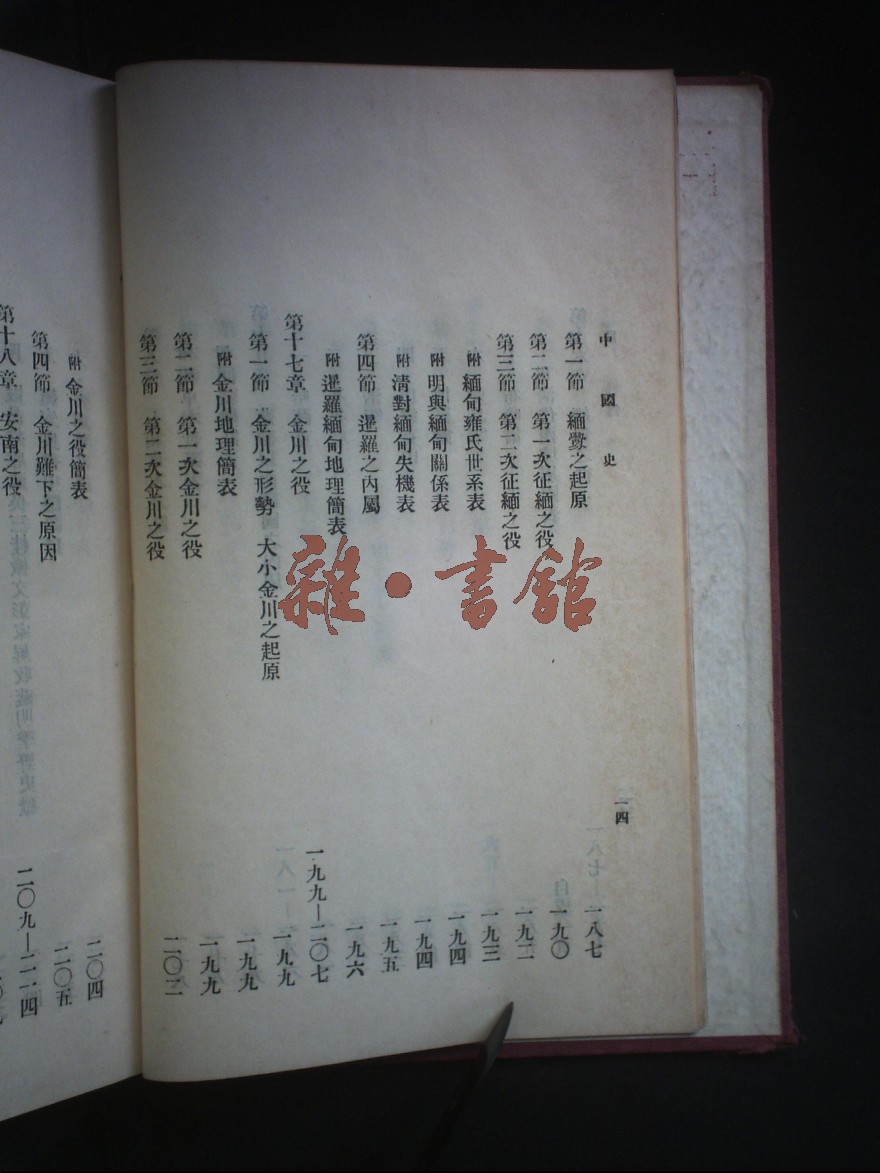 中國史 一四
第一節 緬釁之起原 一八七
第二節 第一次征緬之役 一九〇
第三節 第二次征緬之役 一九二
附 緬甸雍氏世系表 一九三
附 明與緬甸關係表 一九四
附 清對緬甸失機表 一九四
第四節 暹羅之內屬 一九五
附 暹羅緬甸地理簡表 一九六
第十七章 金川之役 一九九—二〇七
第一節 金川之形勢 大小金川之起原 一九九
附 金川地理簡表 一九九
第二節 第一次金川之役 一九九
第三節 第二次金川之役 二〇二
附 金川之役簡表 二〇四
第四節 金川難下之原因 二〇五
第十八章 安南之役 二〇九—二一四
雜·書館